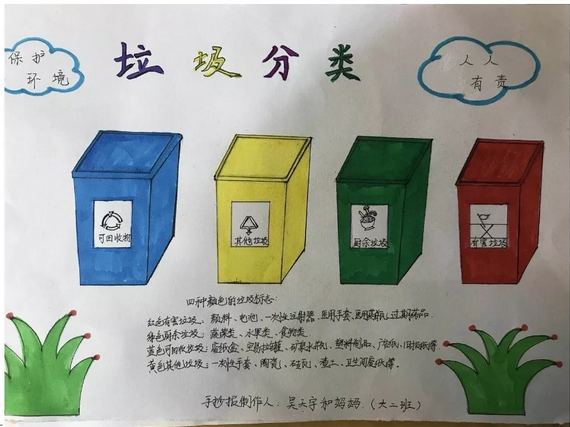 保护
环境
垃圾分类
人人
有责
可回收物
其他垃圾
厨余垃圾
有害垃圾
四种颜色的垃圾标志:
红色有害垃圾:颜料、电池、一次性注射器、医用手套、过期药品
绿色厨余垃圾:蔬菜类、水果类、食物类
蓝色可回收垃圾:易拉罐、矿泉水瓶、塑料制品、旧报纸
黄色其他垃圾:一次性手套、陶瓷、砖瓦、渣土、卫生间废纸等
手抄报制作人:吴天宇和妈妈(大二班)